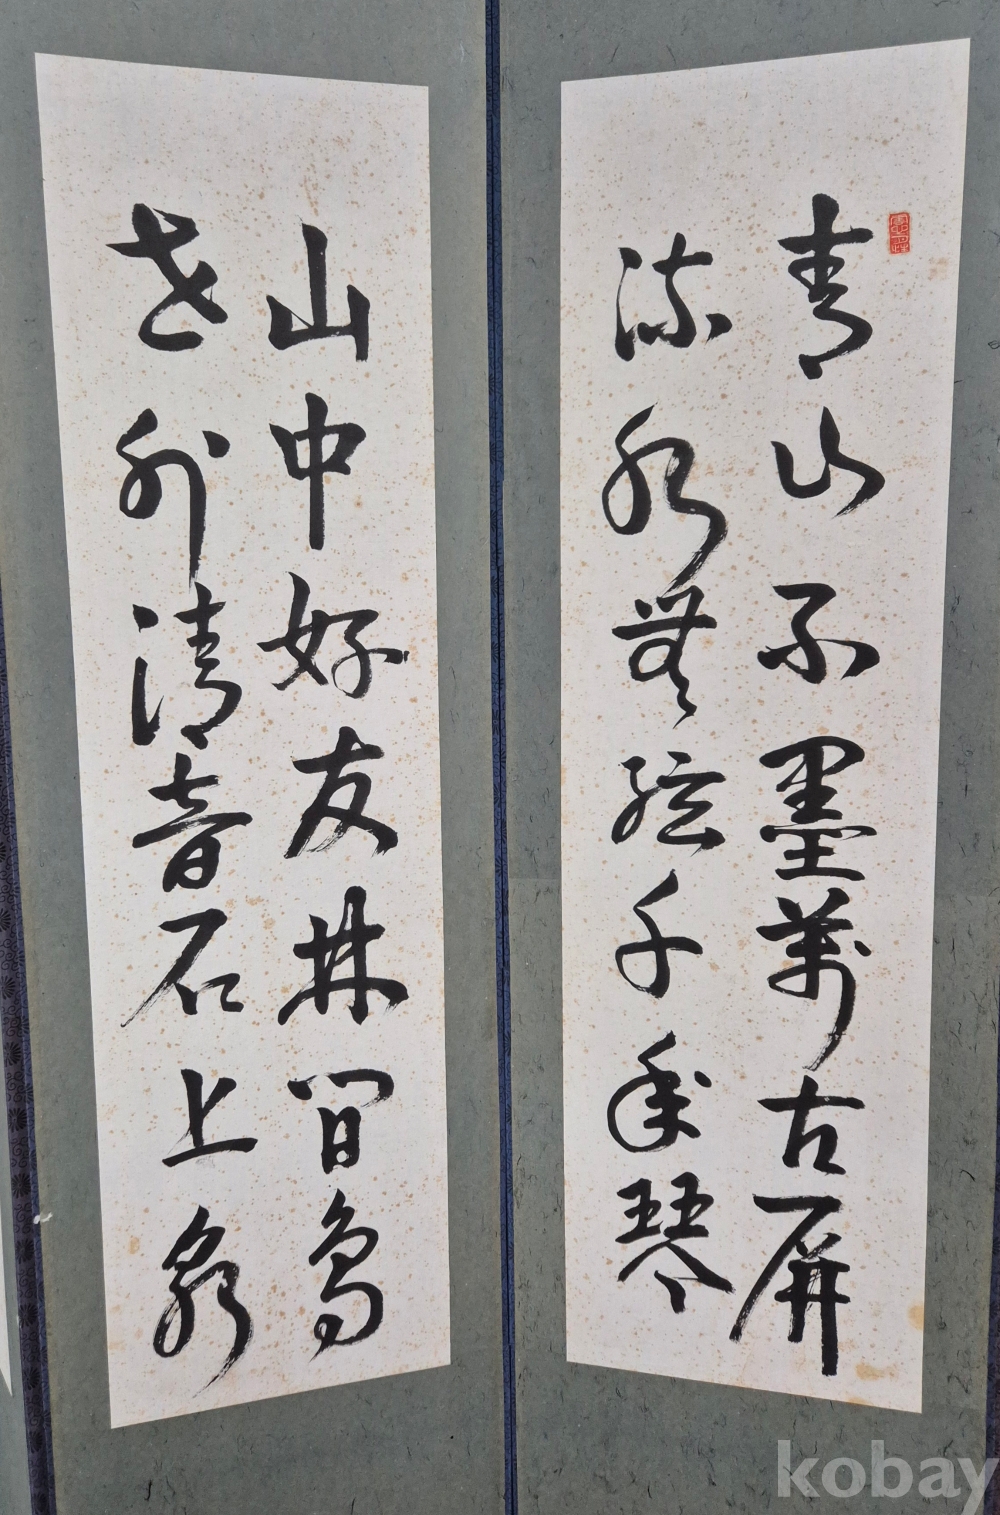 青山不墨萬古屏
流水無弦千年琴
山中好友林間鳥
世外清音石上泉
kobay